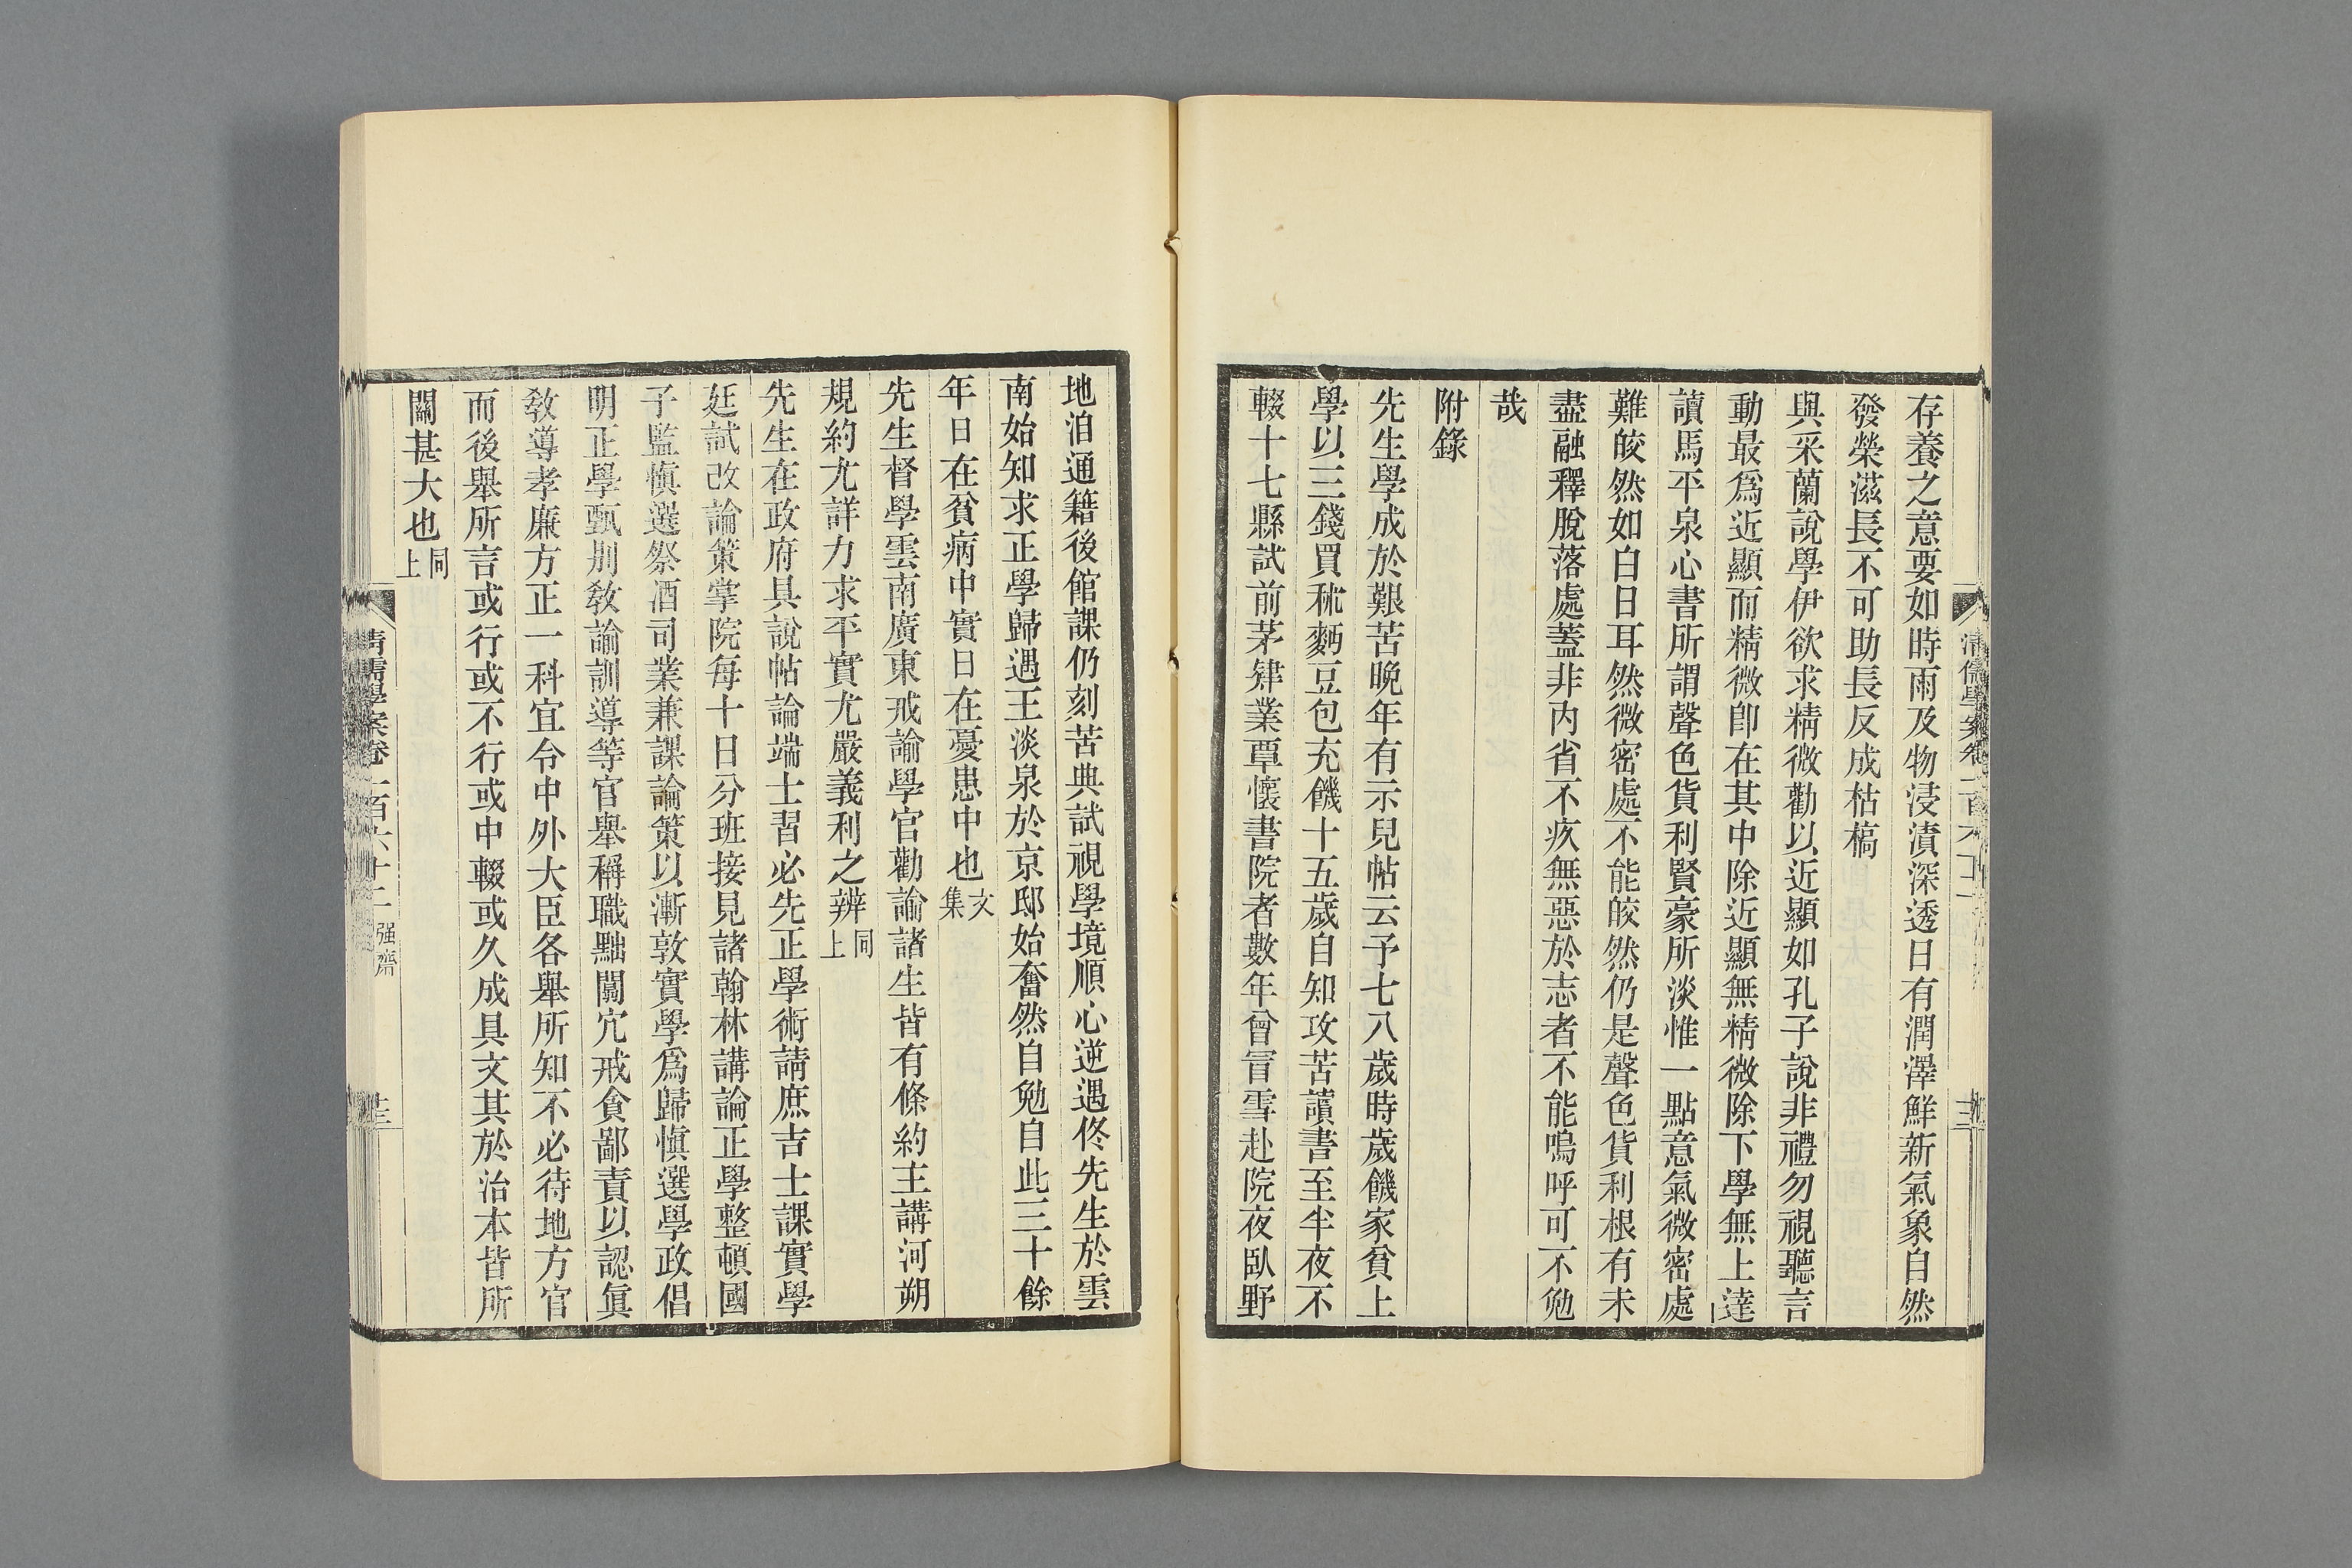 存養之意要如時雨及物浸漬深透日有潤澤鮮新氣象自然
發榮滋長不可助長反成枯槁
與采蘭說學伊欲求精微勸以近顯如孔子說非禮勿視聽言
動最爲近顯而精微卽在其中除近顯無精微除下學無上達
讀馬平泉心書所謂聲色貨利賢豪所淡惟一點意氣微密處
難皎然如白日耳然微密處不能皎然仍是聲色貨利根有未
盡融釋脫落處蓋非內省不疚無惡於志者不能嗚呼可不勉
哉
附錄
先生學成於艱苦晚年有示兒帖云予七八歲時歲饑家貧上
學以三錢買秫麪豆包充饑十五歲自知攻苦讀書至半夜不
輟十七縣試前茅肄業覃懷書院者數年曾冒雪赴院夜臥野
地洎通籍後館課仍刻苦典試視學境順心逆遇佟先生於雲
南始知求正學歸遇王淡泉於京邸始奮然自勉自此三十餘
年日在貧病中實日在憂患中也文集
先生督學雲南廣東戒諭學官勸諭諸生皆有條約主講河朔
規約尤詳力求平實尤嚴義利之辨同上
先生在政府具說帖論端士習必先正學術請庶吉士課實學
廷試改論策掌院每十日分班接見諸翰林講論正學整頓國
子監愼選祭酒司業兼課論策以漸敦實學爲歸愼選學政倡
明正學甄別敎諭訓導等官舉稱職黜闒宂戒貪鄙責以認眞
敎導孝廉方正一科宜令中外大臣各舉所知不必待地方官
而後舉所言或行或不行或中輟或久成具文其於治本皆所
關甚大也同上
清儒學案卷一百六十二 强齋